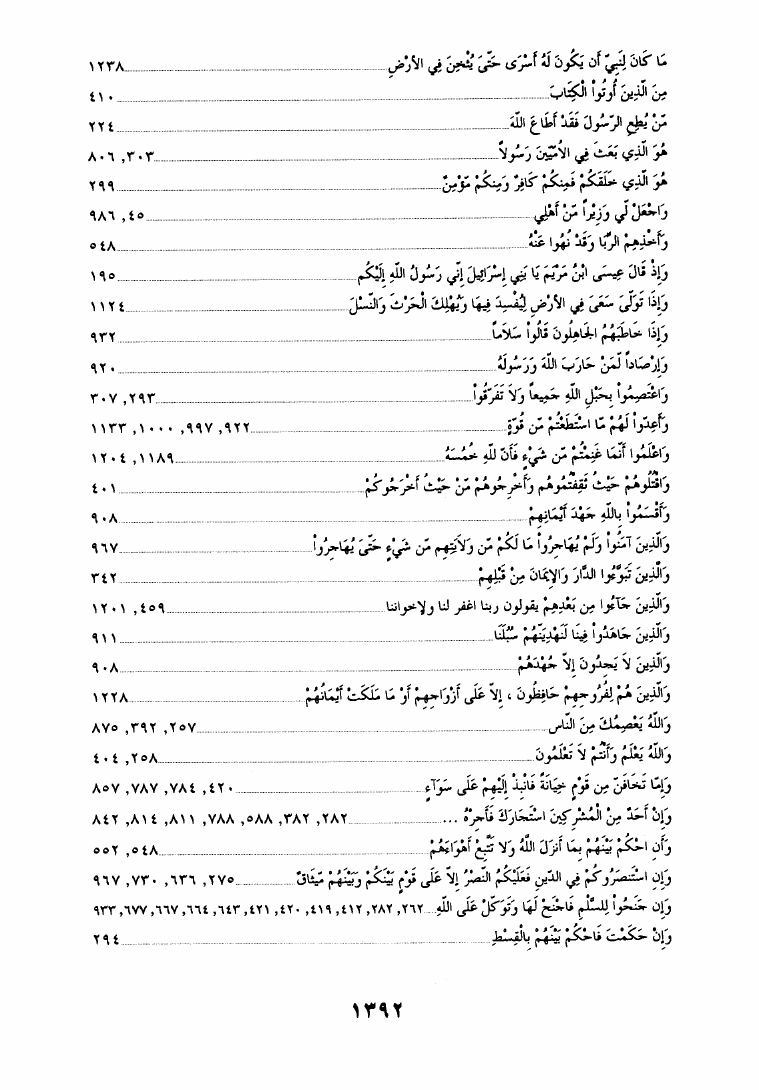 مَا كَانَ لِنَبِيّ أَن يَكُونَ لَهُ أَسْرَى حَتّىَ يُثْخِنَ فِي الأرْضِ ١٢٣٨
مِنَ الّذِينَ أُوتُواْ الْكِتَابَ ٤١٠
مّنْ يُطِعِ الرّسُولَ فَقَدْ أَطَاعَ اللّهَ ٢٢٤
هُوَ الّذِي بَعَثَ فِي الاُمّيّينَ رَسُولاً ٣٠٣, ٨٠٦
هُوَ الّذِي خَلَقَكُمْ فَمِنكُمْ كَافِرٌ وَمِنكُمْ مّؤْمِنٌ ٢٩٩
وَاجْعَلْ لّي وَزِيْراً مّنْ أَهْلِي ٤٥, ٩٨٦
وَأَخْذِهِمْ الرّبَا وَقَدْ نُهُوا عَنْهُ ٥٤٨
وَإِذْ قَالَ عِيسَى ابْنُ مَرْيَمَ يَا بَنِي إِسْرَائِيلَ إِنّي رَسُولُ اللّهِ إِلَيْكُم ١٩٥
وَإِذَا تَوَلّىَ سَعَىَ فِي الأرْضِ لِيُفْسِدَ فِيهَا وَيُهْلِكَ الْحَرْثَ وَالنّسْلَ ١١٢٤
وَإِذَا خَاطَبَهُمُ الجَاهِلُونَ قَالُواْ سَلاَماً ٩٣٢
وَإِرْصَاداً لّمَنْ حَارَبَ اللّهَ وَرَسُولَهُ ٩٢٠
وَاعْتَصِمُواْ بِحَبْلِ اللّهِ جَمِيعاً وَلاَ تَفَرّقُواْ ٢٩٣, ٣٠٧
وَأَعِدّواْ لَهُمْ مّا اسْتَطَعْتُمْ مّن قُوّةٍ ٩٢٢, ٩٩٧, ١٠٠٠, ١١٣٣
وَاعْلَمُوا أَنّمَا غَنِمْتُمْ مّن شَيْءٍ فَأَنّ للّهِ خُمُسَهُ ١١٨٩, ١٢٠٤
وَاقْتُلُوهُمْ حَيْثُ ثَقِفْتُمُوهُم وَأَخْرِجُوهُمْ مّنْ حَيْثُ أَخْرَجُوكُمْ ٤٠١
وَأَقْسَمُواْ بِاللّهِ جَهْدَ أَيْمَانِهِمْ ٩٠٨
وَالّذِينَ آمَنُواْ وَلَمْ يُهَاجِرُواْ مَا لَكُمْ مّن وَلاَيَتِهِم مّن شَيْءٍ حَتّىَ يُهَاجِرُواْ ٩٦٧
وَالّذِينَ تَبَوّءُوا الدَّارَ وَالإِيمَانَ مِنْ قَبْلِهِمْ ٣٤٢
وَالّذِينَ جَآءُوا مِن بَعْدِهِمْ يقولون ربنا اغفر لنا ولإخواننا ٤٥٩, ١٢٠١
وَالّذِينَ جَاهَدُواْ فِينَا لَنَهْدِيَنّهُمْ سُبُلَنَا ٩١١
وَالّذِينَ لاَ يَجِدُونَ إِلاّ جُهْدَهُمْ ٩٠٨
وَالّذِينَ هُمْ لِفُرُوجِهِمْ حَافِظُونَ ، إِلاّ عَلَى أَزْوَاجِهِمْ أَوْ مَا مَلَكَتْ أَيْمَانُهُمْ ١٢٢٨
وَاللّهُ يَعْصِمُكَ مِنَ النّاس ٢٥٧, ٣٩٢, ٨٧٥
وَاللّهُ يَعْلَمُ وَأَنْتُمْ لاَ تَعْلَمُونَ ٢٥٨, ٤٠٤
وَإِمّا تَخَافَنّ مِن قَوْمٍ خِيَانَةً فَانْبِذْ إِلَيْهِمْ عَلَى سَوَآءٍ ٤٢٠, ٧٨٤, ٧٨٧, ٨٥٧
وَإِنْ أَحَدٌ مِنْ الْمُشْرِكِينَ اسْتَجَارَكَ فَأَجِرْهُ ... ٢٨٢, ٣٨٢, ٥٨٨, ٧٨٨, ٨١١, ٨١٤, ٨٤٢
وَأَنِ احْكُمْ بَيْنَهُمْ بِمَا أَنزَلَ اللّهُ وَلا تَتّبِعْ أَهْوَاءَهُمْ ٥٤٨, ٥٥٢
وَإِنِ اسْتَنصَرُوكُمْ فِي الدّينِ فَعَلَيْكُمُ النّصْرُ إِلاّ عَلَى قَوْمٍ بَيْنَكُمْ وَبَيْنَهُمْ مّيثَاقٌ ٢٧٥, ٦٣٦, ٧٣٠, ٩٦٧
وَإِن جَنَحُواْ لِلسّلْمِ فَاجْنَحْ لَهَا وَتَوَكّلْ عَلَى اللّهِ ٢٦٢, ٢٨٢, ٤١٢, ٤١٩, ٤٢٠, ٤٢١, ٦٤٣, ٦٦٤, ٦٦٧, ٦٧٧, ٩٣٣
وَإِنْ حَكَمْتَ فَاحْكُمْ بَيْنَهُمْ بِالْقِسْطِ ٢٩٤
١٣٩٢